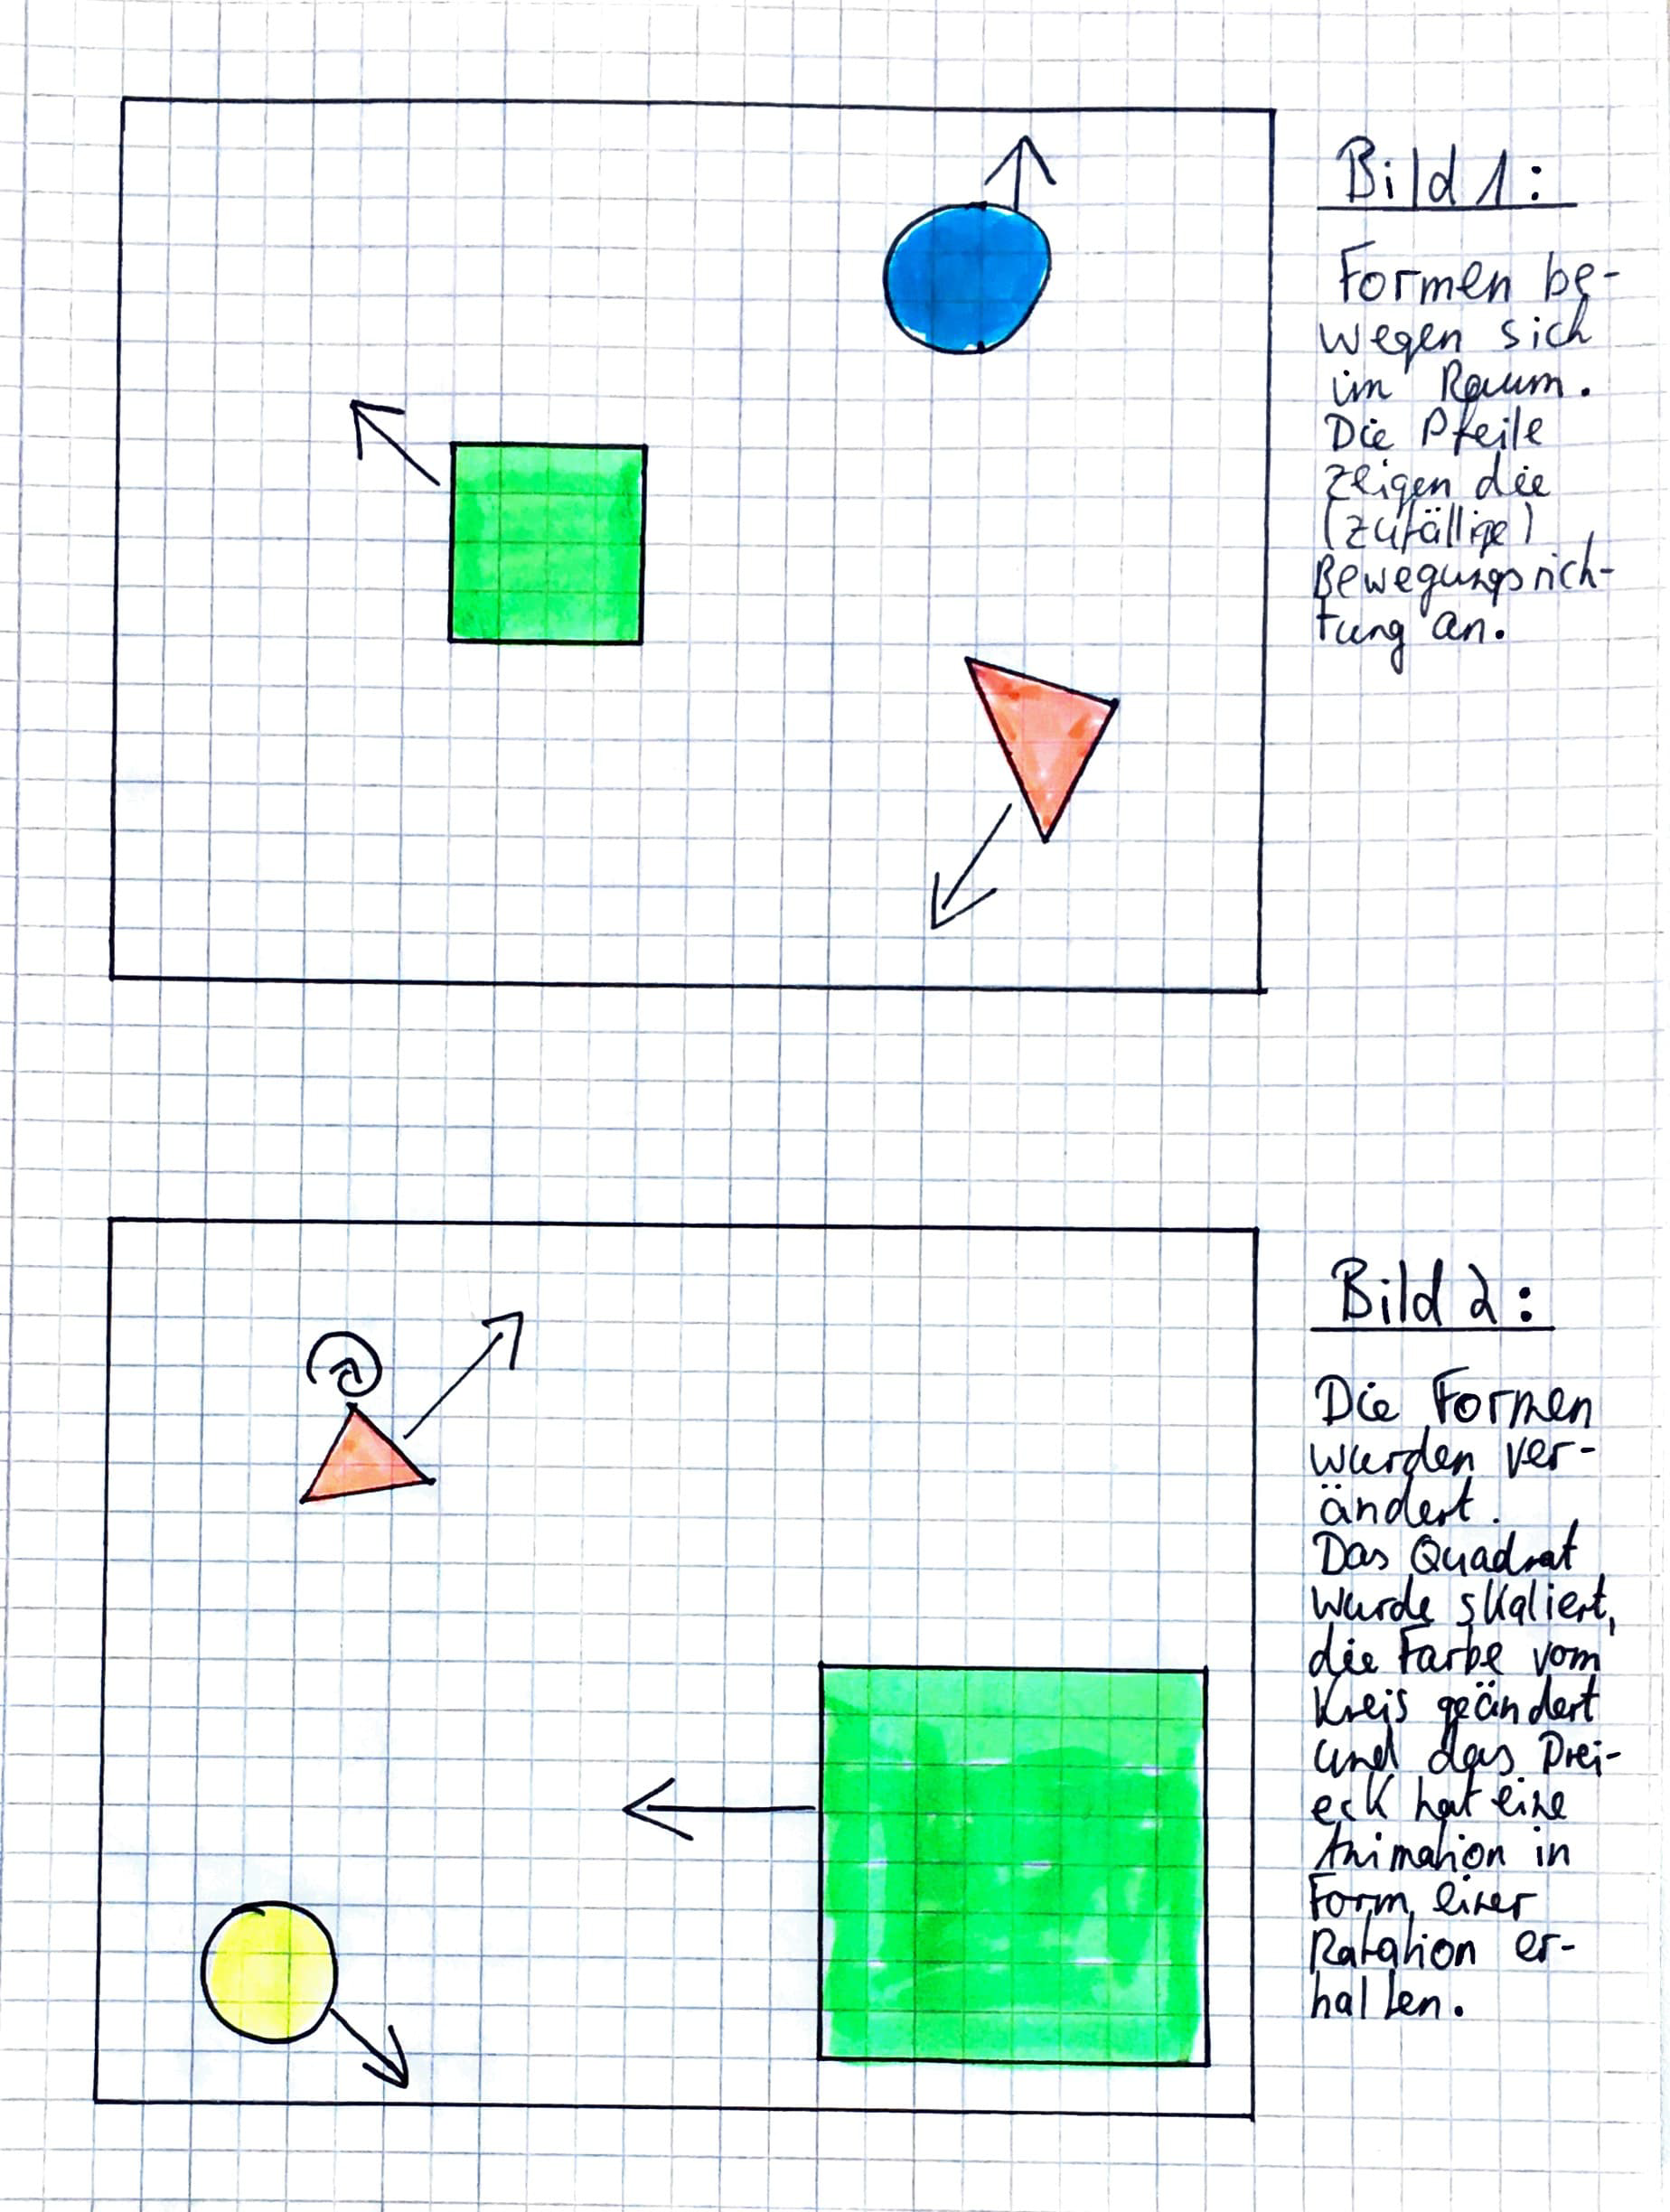 Bild 1:
Formen be-
wegen sich
im Raum.
Die Pfeile
zeigen die
(zufällige)
Bewegungsrich-
tung an.
Bild 2:
Die Formen
wurden ver-
ändert.
Das Quadrat
wurde skaliert,
die Farbe vom
Kreis geändert
und das Drei-
eck hat eine
Animation in
Form einer
Rotation er-
halten.